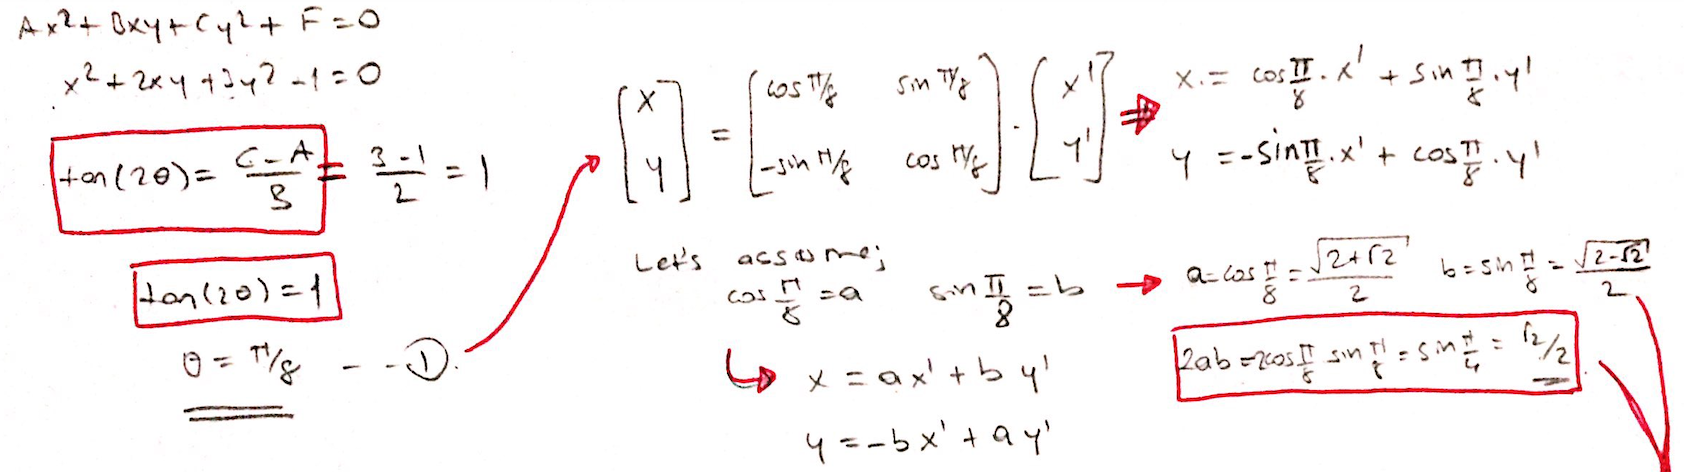 Ax² + Bxy + Cy² + F = 0
x² + 2xy + 3y² - 1 = 0
tan(2θ) = (C - A)/B = (3 - 1)/2 = 1
tan(2θ) = 1
θ = π/8 - - ①.
[x y] = [cos π/8 sin π/8 -sin π/8 cos π/8] · [x' y'] ⇒
x = cos π/8 . x' + sin π/8 . y'
y = -sin π/8 . x' + cos π/8 . y'
Let's assume;
cos π/8 = a sin π/8 = b → a = cos π/8 = √(2+√2)/2 b = sin π/8 = √(2-√2)/2
2ab = 2cos π/8 sin π/8 = sin π/4 = √2/2
x = ax' + by'
y = -bx' + ay'